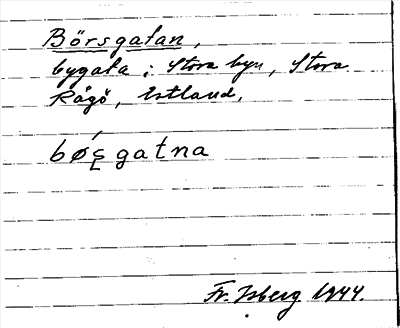 Börsgatan,
bygata i Stora byn, Stora
Rågö, Estland.
bǿʂgatna
Fr. Isberg 1944.